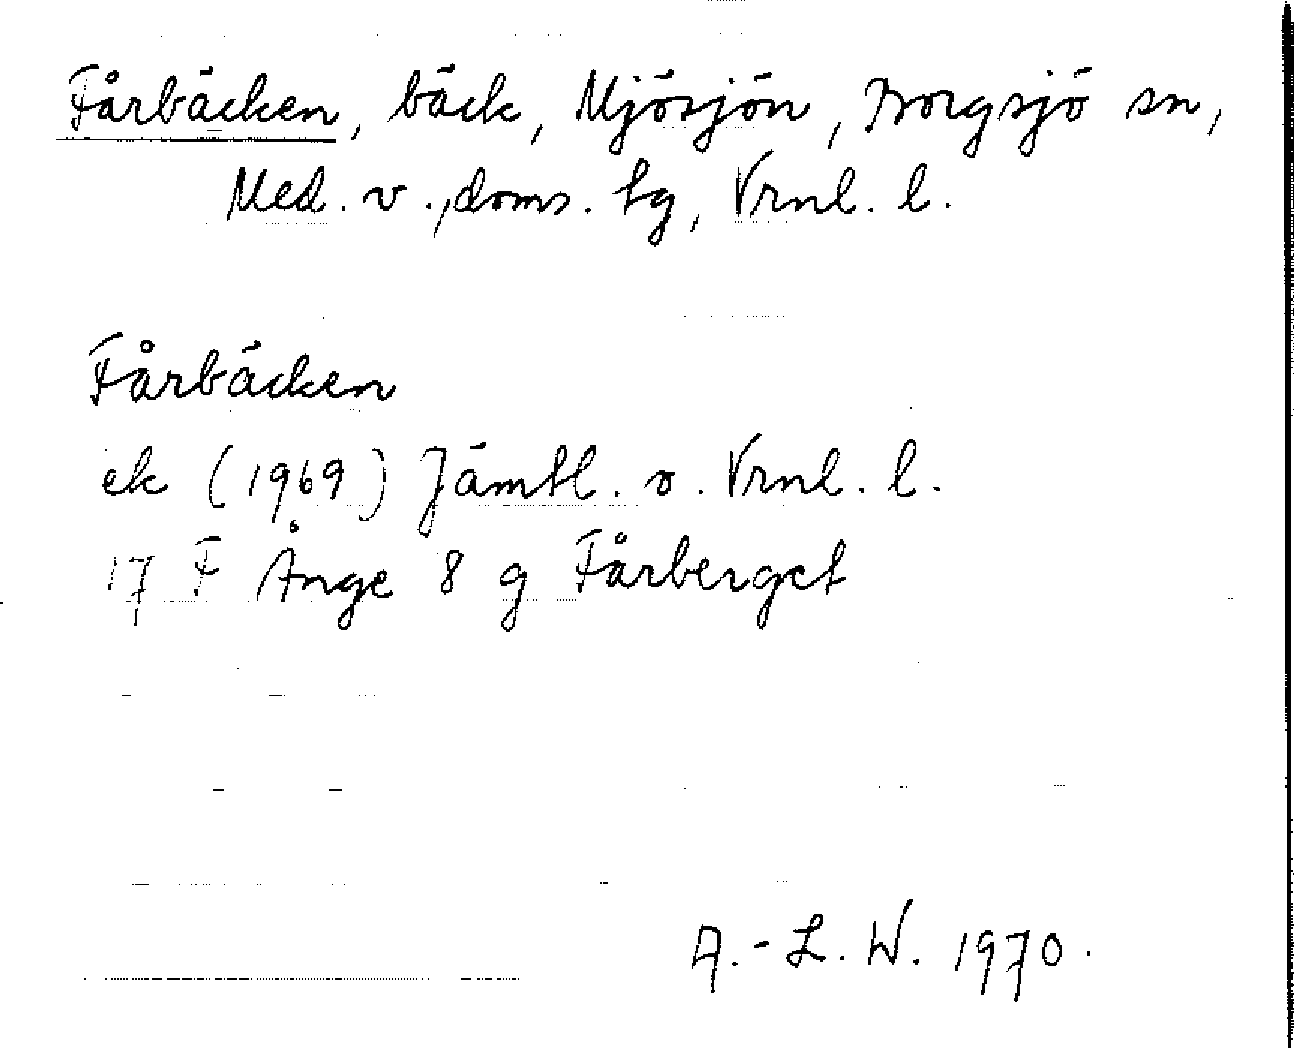 Fårbäcken, bäck, Mjösjön, Borgsjö sn,
Med. v., doms. tg, Vrnl. l.
Fårbäcken
ek (1969) Jämtl. o. Vrnl. l.
17 F Ånge 8 g Fårberget
A.-L. W. 1970.